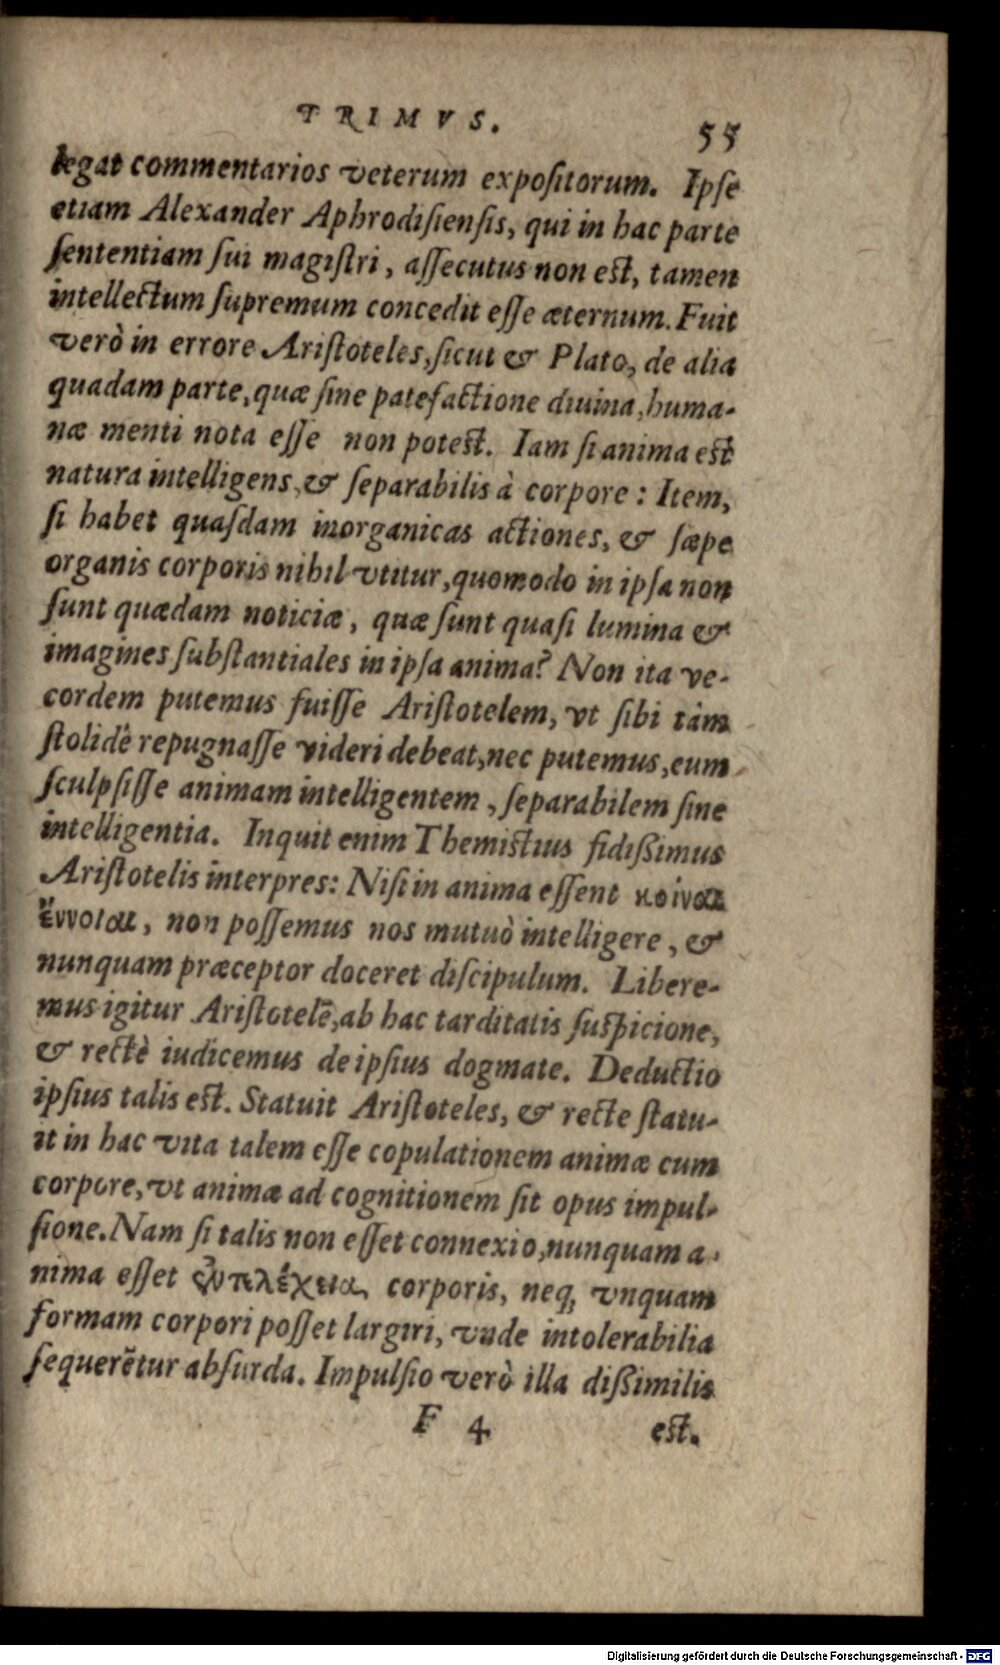 PRIMVS. 55
legat commentarios veterum expoſitorum. Ipſe
etiam Alexander Aphrodiſienſis, qui in hac parte
ſententiam ſui magiſtri, aſſecutus non eſt, tamen
intellectum ſupremum concedit eſſe æternum. Fuit
verò in errore Ariſtoteles, ſicut & Plato, de alia
quadam parte, quæ ſine patefactione diuina, huma-
næ menti nota eſſe non poteſt. Iam ſi anima eſt
natura intelligens, & ſeparabilis à corpore: Item,
ſi habet quaſdam inorganicas actiones, & ſæpe
organis corporis nihil vtitur, quomodo in ipſa non
ſunt quædam noticiæ, quæ ſunt quaſi lumina &
imagines ſubſtantiales in ipſa anima? Non ita ve-
cordem putemus fuiſſe Ariſtotelem, vt ſibi tàm
ſtolidè repugnaſſe videri debeat, nec putemus, eum
ſculpſiſſe animam intelligentem, ſeparabilem ſine
intelligentia. Inquit enim Themiſtius fidiſſimus
Ariſtotelis interpres: Niſi in anima eſſent κοίναι
ἔννοιαι, non poſſemus nos mutuò intelligere, &
nunquam præceptor doceret diſcipulum. Libere-
mus igitur Ariſtotelē, ab hac tarditatis ſuſpicione,
& rectè iudicemus de ipſius dogmate. Deductio
ipſius talis eſt. Statuit Ariſtoteles, & recte ſtatu-
it in hac vita talem eſſe copulationem animæ cum
corpore, vt animæ ad cognitionem ſit opus impul-
ſione. Nam ſi talis non eſſet connexio, nunquam a-
nima eſſet ἐντελέχεια corporis, neq; vnquam
formam corpori poſſet largiri, vnde intolerabilia
ſequerētur abſurda. Impulſio verò illa diſſimilis
F 4 eſt.
Digitalisierung gefördert durch die Deutsche Forschungsgemeinschaft - DFG